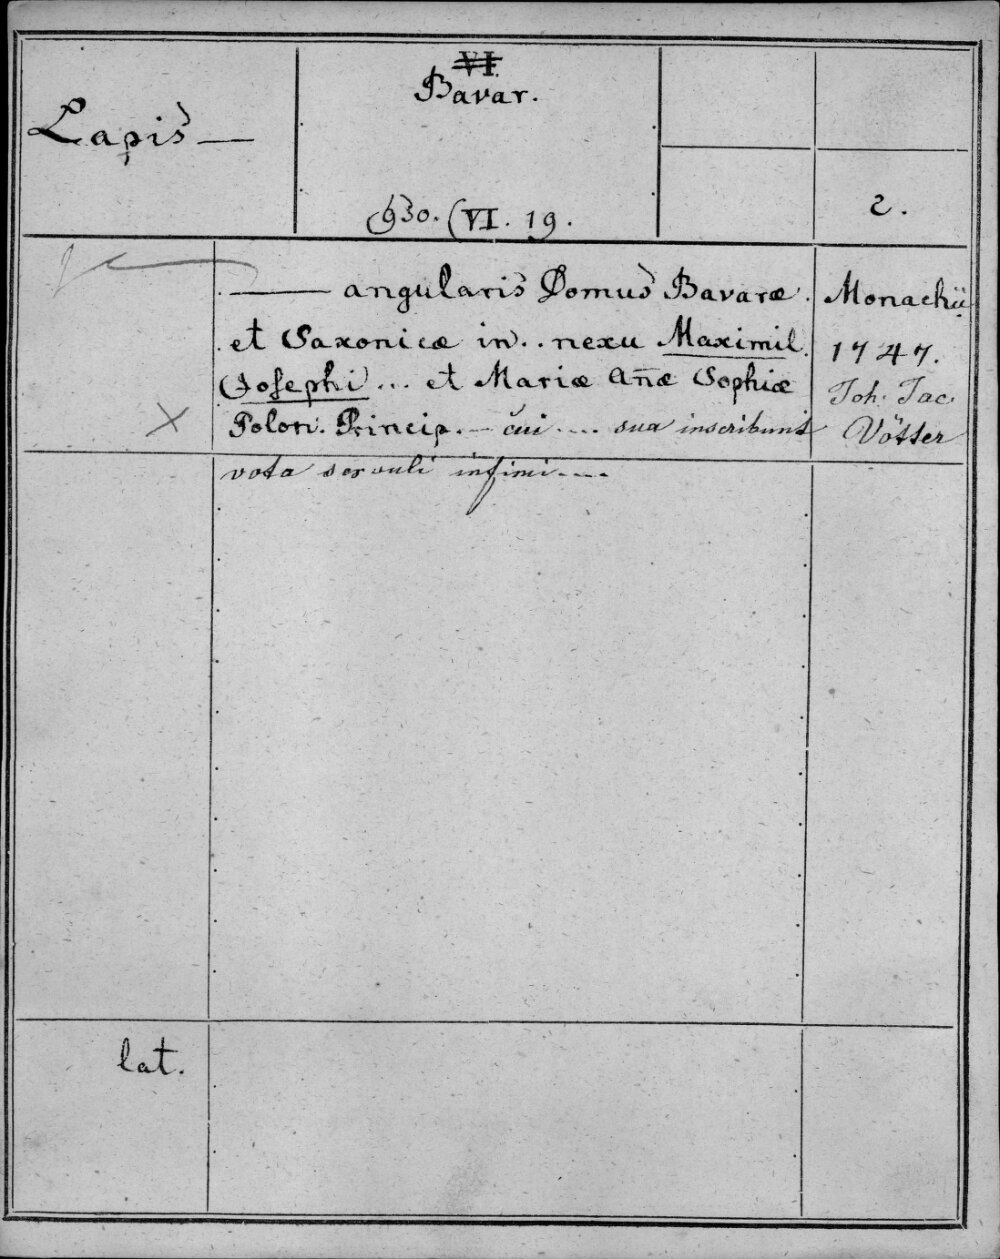 Lapis —
VI.
Bavar.
930. (VI. 19.
2.
— angularis Domus Bavaræ
et Saxonicæ in .. nexu Maximil.
Josephi ... et Mariæ Añæ Sophiæ
Polon. Princip. — cui .... sua inscribunt
vota servuli infimi ....
Monachii
1747.
Joh. Jac.
Vötter
lat.